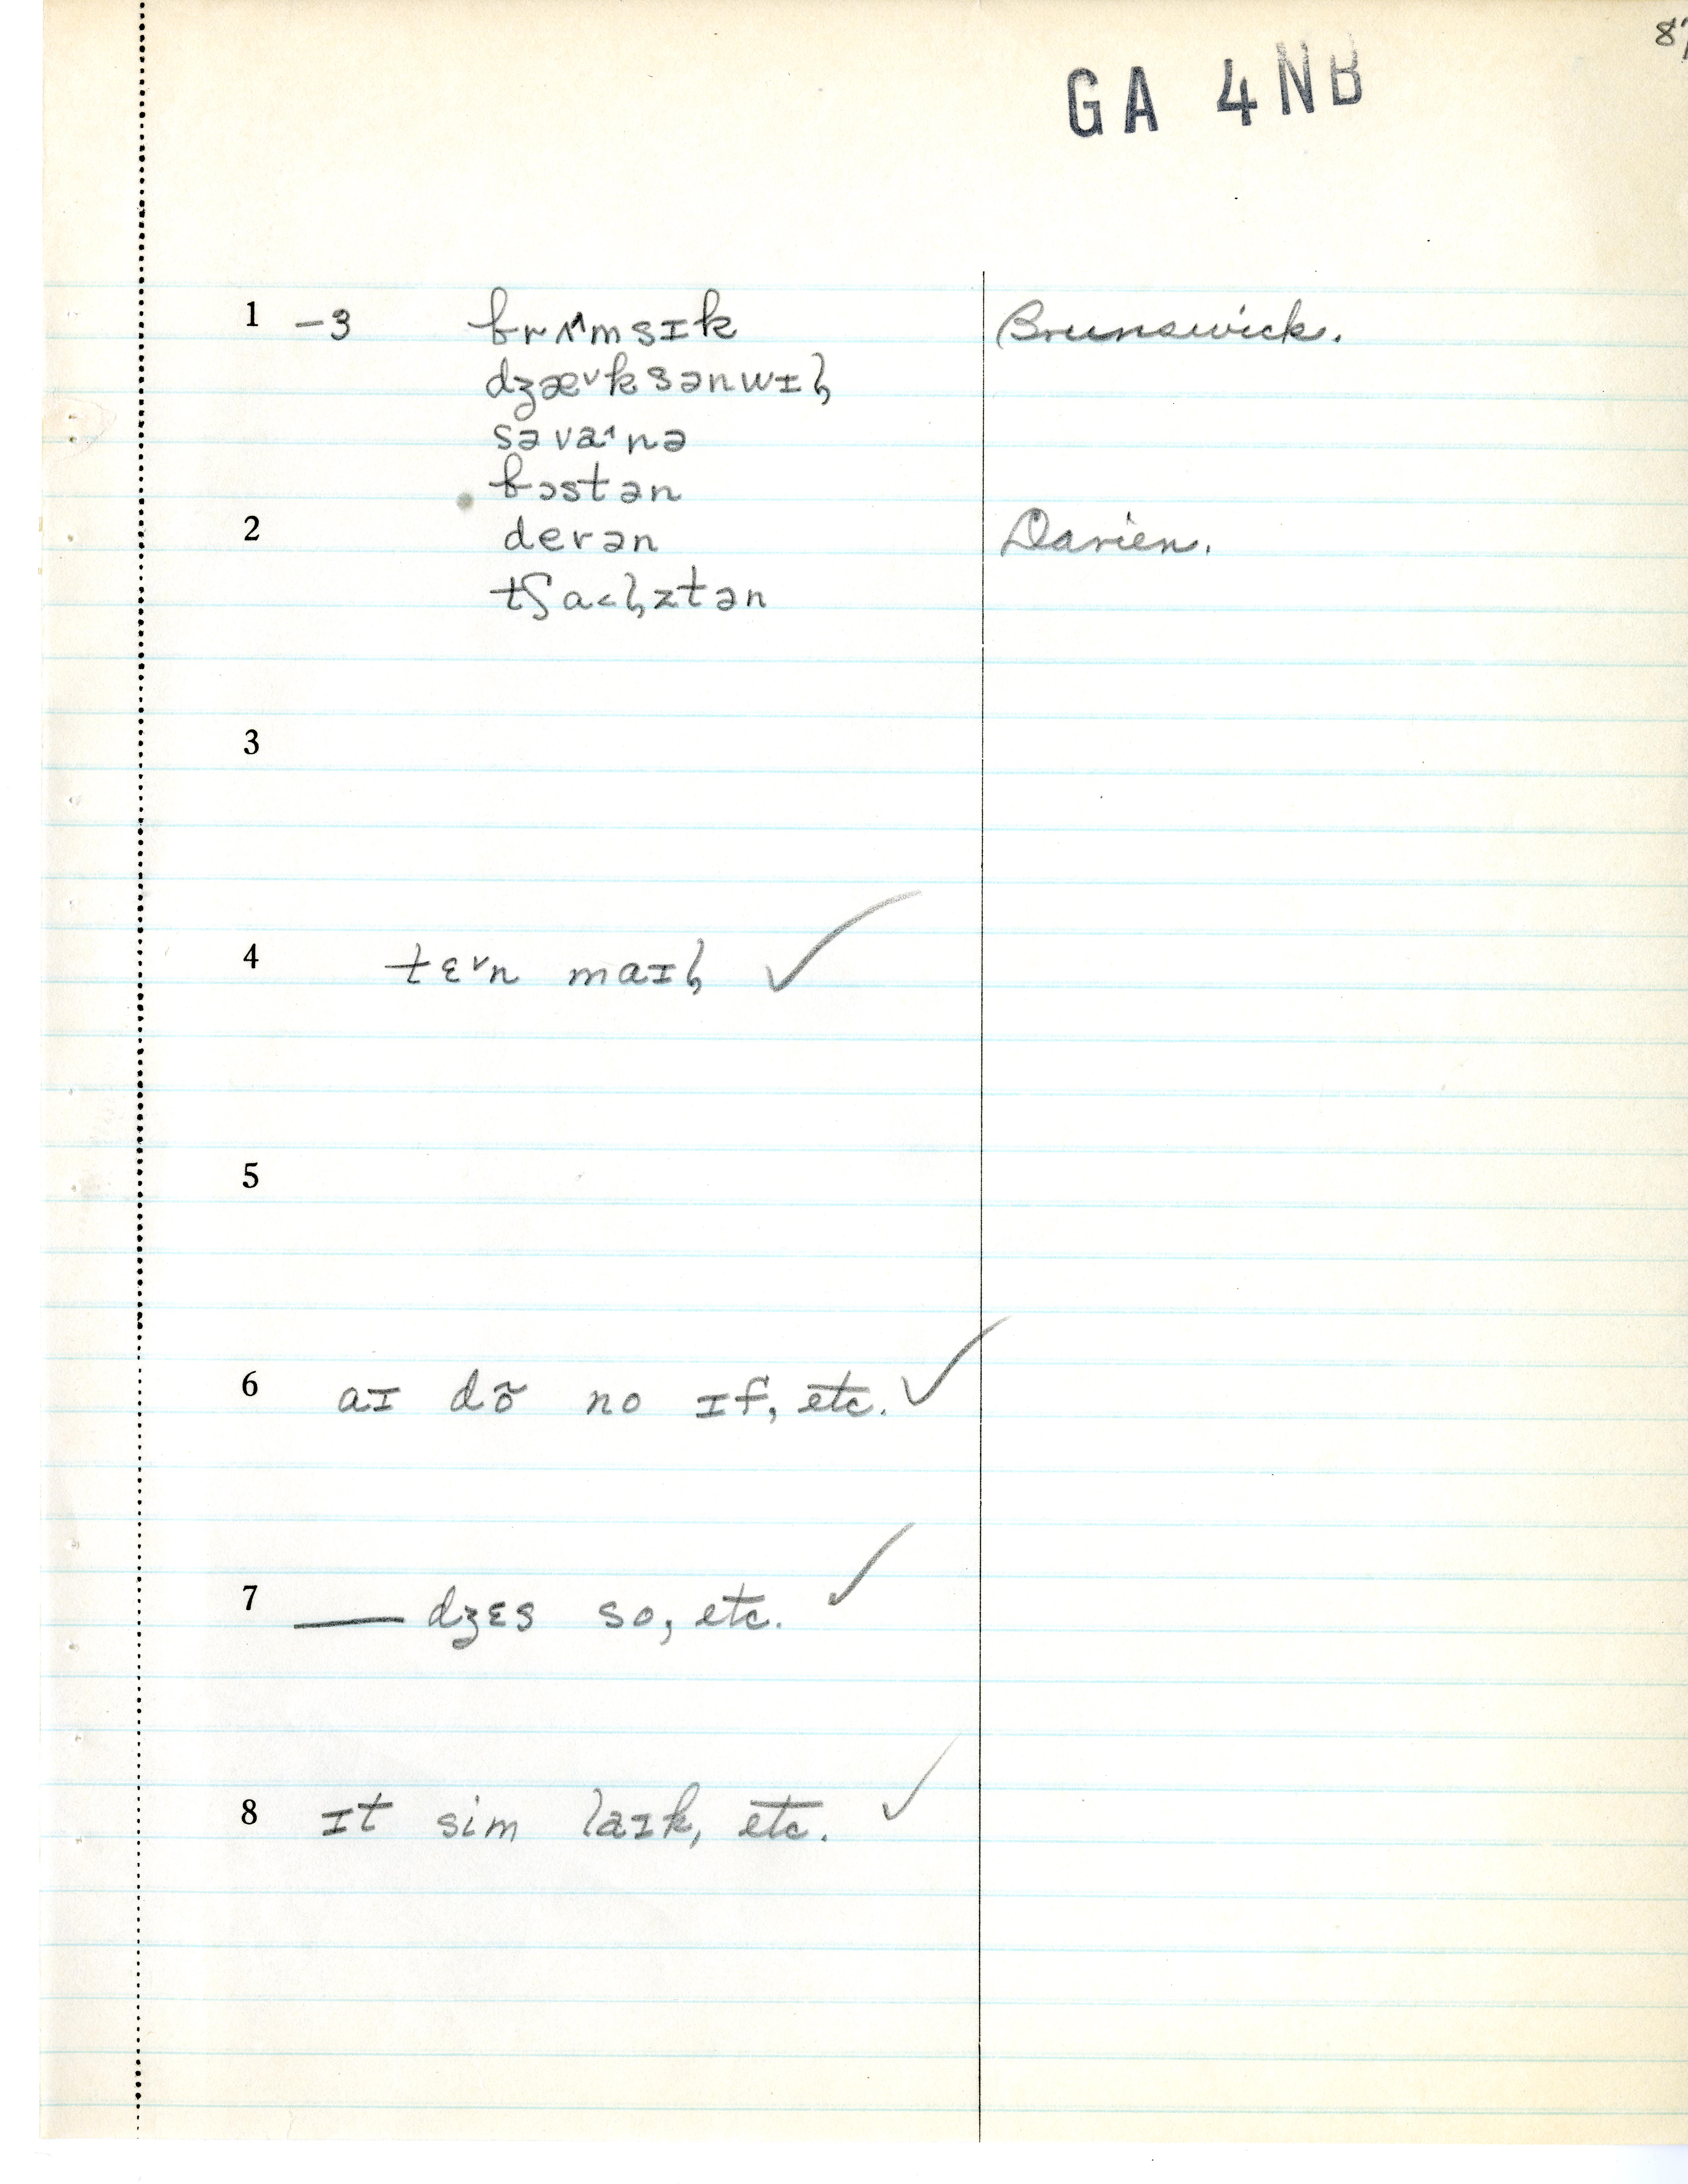 87
GA 4NB
1 –3 brʌ˄msɪk Brunswick.
dʒæ˅ksənwɪɫ
səva˄nə
bɔstən
2 derən Darien.
tʃɑ˂ɫztən
3
4 tɛ˅n maɪɫ ✓
5
6 aɪ dõ no ɪf, etc. ✓
7 — dʒɛs so, etc. ✓
8 ɪt sim laɪk, etc. ✓